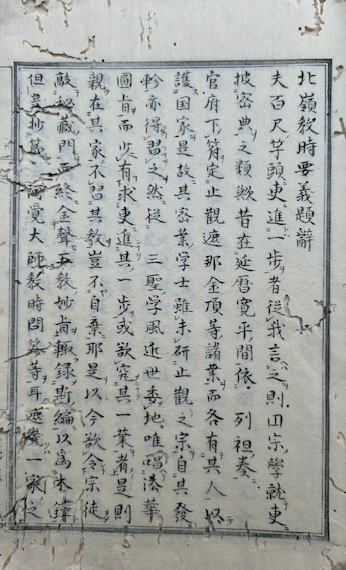 北嶺教時要義題辭
夫百尺竿頭更進一歩者從我言之則四宗學就更
披密典之類歟昔在延暦寛平間依列祖奏
官府下符定止觀遮那金頂等諸業而各有其人以
護国家是故其密業学士雖未研止觀之宗自其發
軫亦得習之然従三聖学風逝世委地唯唱法華
圓旨而少有求更進其一歩或欲究其一業者是則
親在其家不習其教豈不自棄耶是以今欲令宗徒
敲秘藏門而終金聲玉教妙旨輙録斯編以為木鐸
但是抄覚大師教時問答等耳庶幾一家之